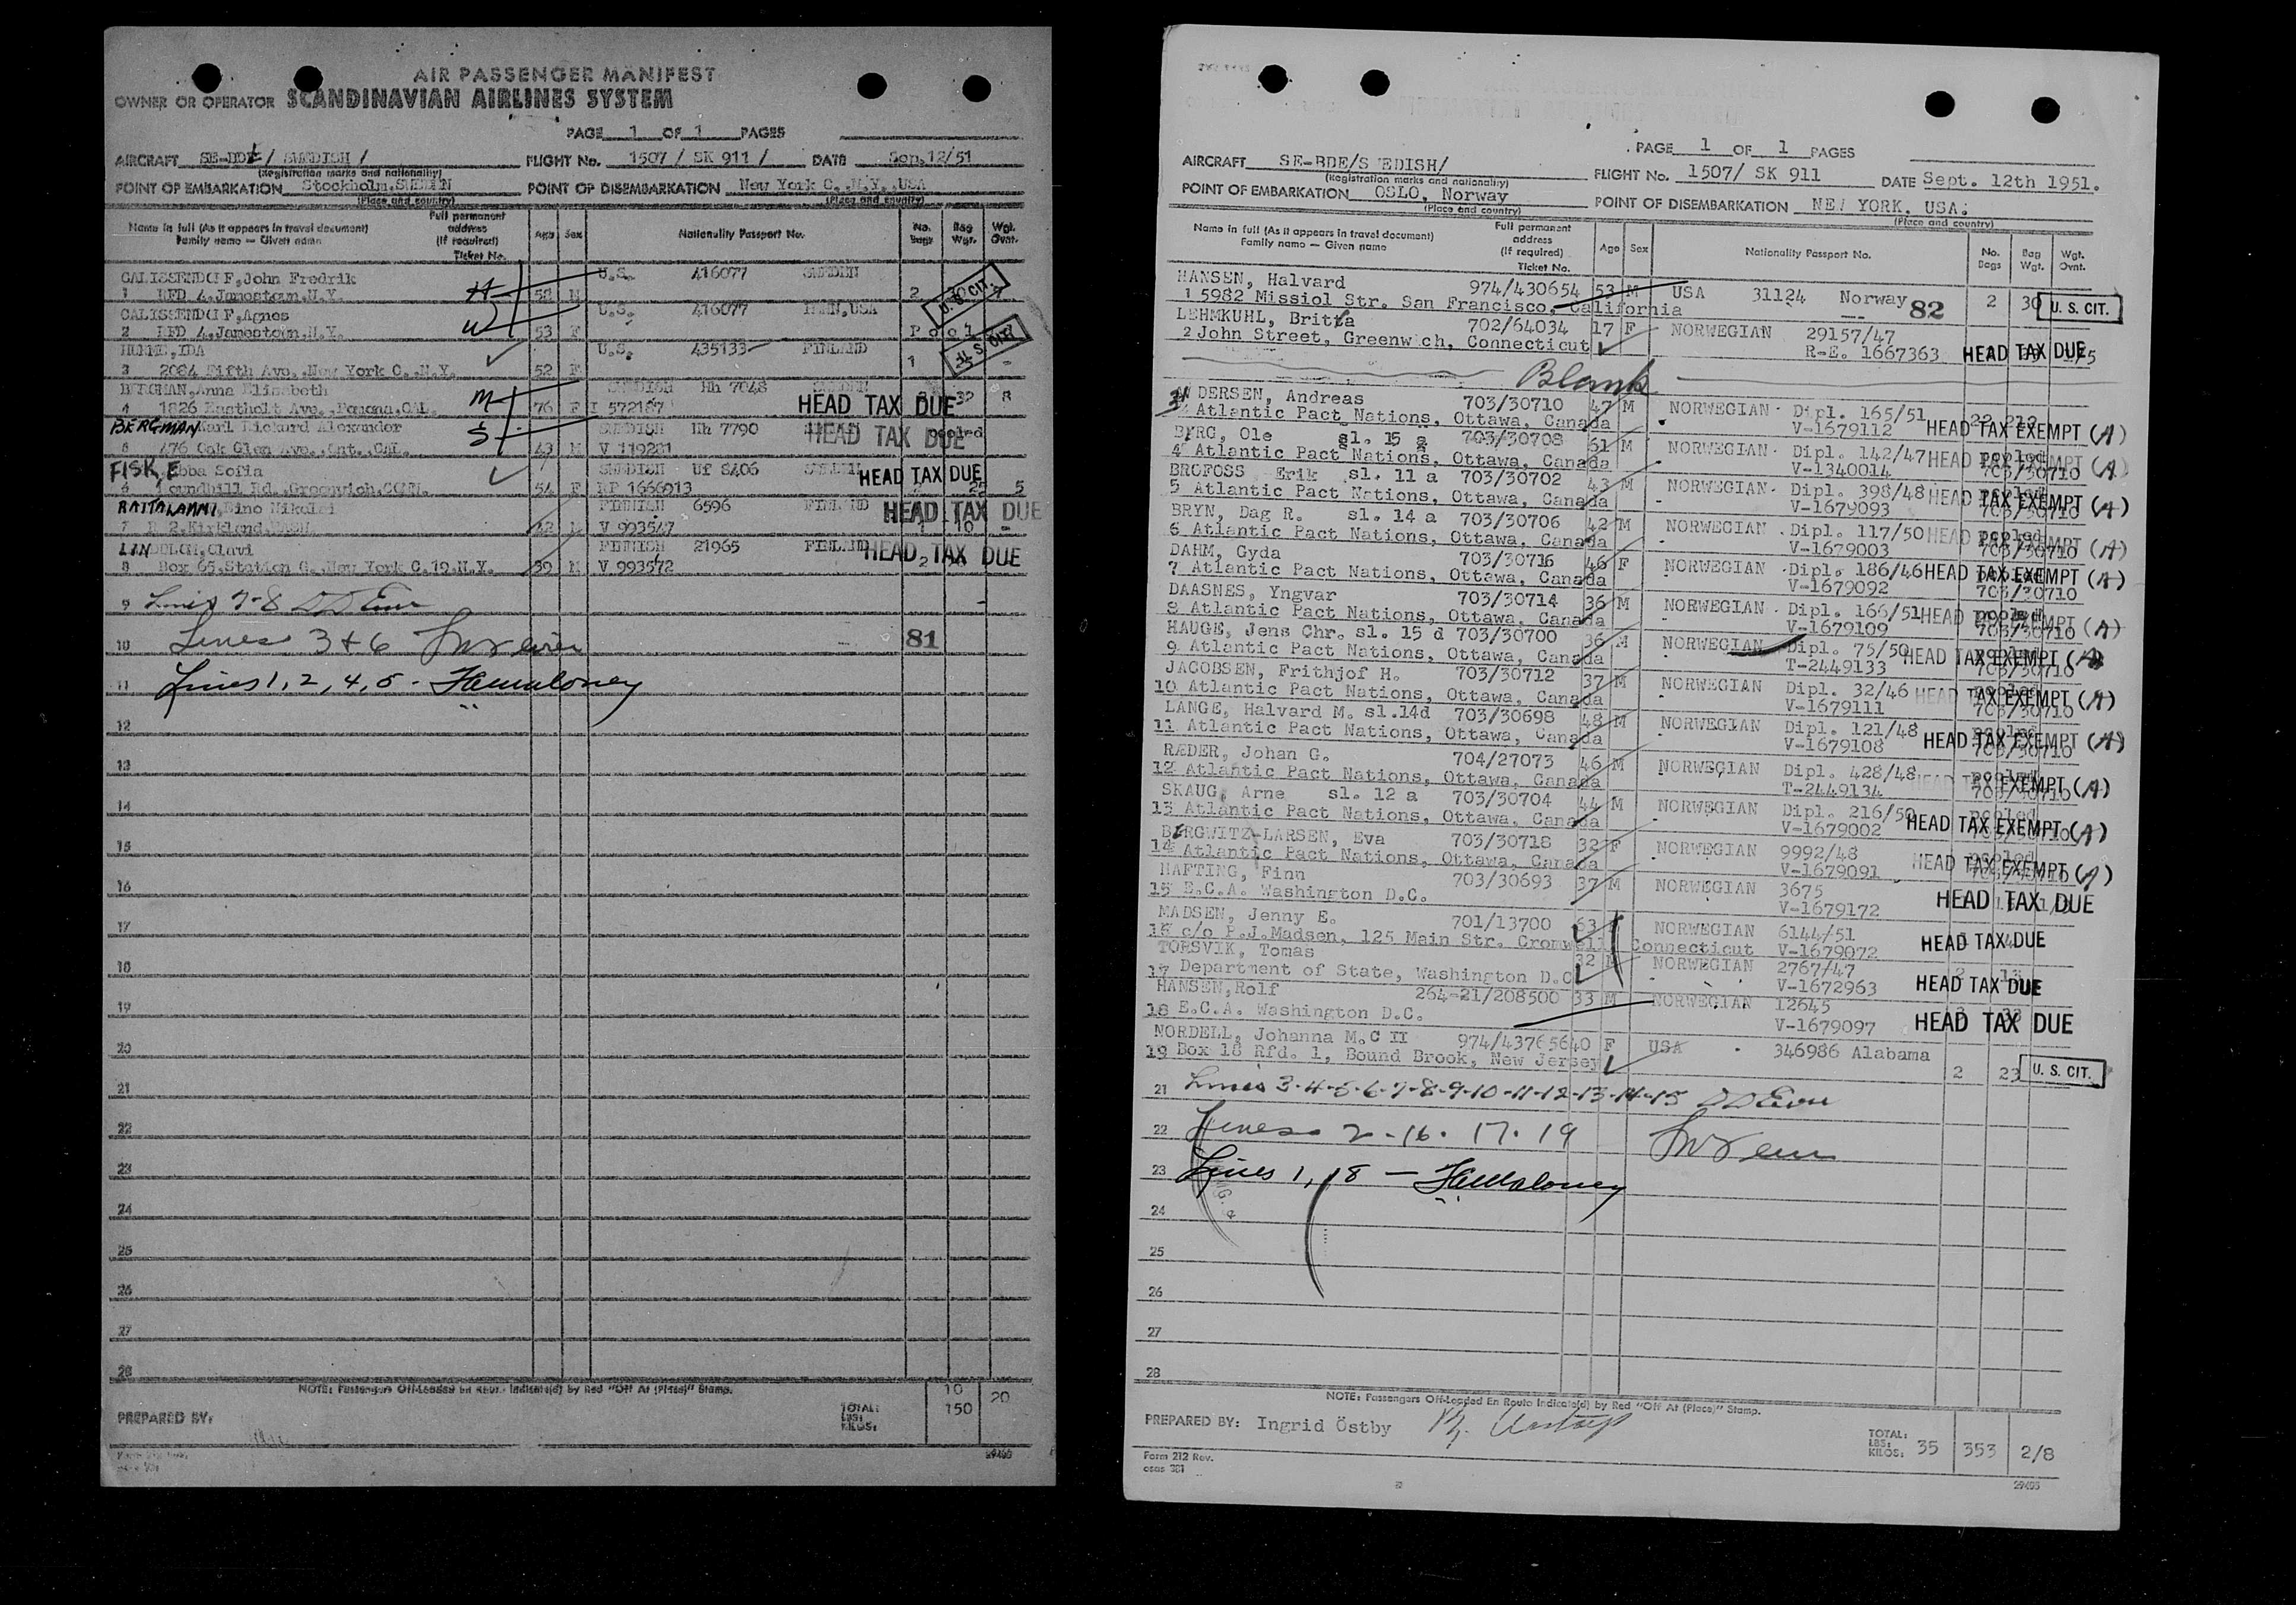 AIR PASSENGER MANIFEST
OWNER OR OPERATOR SCANDINAVIAN AIRLINES SYSTEM
PAGE 1 OF 1 PAGES
AIRCRAFT SE-BDE / SWEDISH / FLIGHT No. 1507 / SK 911 / DATE Sep.12/51
(Registration marks and nationality)
POINT OF EMBARKATION Stockholm.SWEDEN POINT OF DISEMBARKATION New York C.,N.Y.,USA
(Place and country) (Place and country)
Name in full (As it appears in travel document) Family name — Given name Full permanent address (If required) Ticket No. Age Sex Nationality Passport No. No. Bags Bag Wgt. Wgt. Ovnt.
John Fredrik U.S. 416077 SWEDEN
1 RFD 4.Jamestown.N.Y. H 58 M 2 U. S. CIT.
Agnes U.S. 416077 USA
2 RFD 4.Jamestown.N.Y. W 53 F Pool
IDA U.S. 435133 FINLAND
3 2084 Fifth Ave.,New York C.,N.Y. 52 F 1 U. S. CIT. -
BERGMAN,Anna Elisabeth M SWEDISH Hh 7048 SWEDEN
4 1826 Ave., CAL. 76 F I 572187 HEAD TAX DUE 32 8
BERGMAN Karl Rickard Alexander S SWEDISH Hh 7790
5 476 Oak Glen Ave.,Ont.,CAL. 43 M V 119281 HEAD TAX DUE
FISK, Ebba Sofia SWEDISH Uf 8406 SWEDEN HEAD TAX DUE
6 Roundhill Rd.,Greenwich,CONN. 54 F RP 1666913 25 5
Nikolai FINNISH 6596 FINLAND HEAD TAX DUE
7 R 2.Kirkland.WASH. 42 M V 993547 1 10 -
Olavi FINNISH 21965 FINLAND HEAD TAX DUE
8 Box 65.Station G.,New York C.19.N.Y. 39 M V 993572
9 Lines 7-8
10 Lines 3 + 6 81
11 Lines 1, 2, 4, 5 - Maloney
12
13
14
15
16
17
18
19
20
21
22
23
24
25
26
27
28
NOTE: Passengers Off-Loaded En Route Indicate(d) by Red "Off At (Place)" Stamp.
PREPARED BY: TOTAL: LBS: KILOS: 10 150 20
29495
PAGE 1 OF 1 PAGES
AIRCRAFT SE-BDE/S EDISH/ FLIGHT No. 1507/ SK 911 DATE Sept. 12th 1951.
(Registration marks and nationality)
POINT OF EMBARKATION OSLO, Norway POINT OF DISEMBARKATION NEW YORK, USA.
(Place and country) (Place and country)
Name in full (As it appears in travel document) Family name — Given name Full permanent address (If required) Ticket No. Age Sex Nationality Passport No. No. Bags Bag Wgt. Wgt. Ovnt.
HANSEN, Halvard 974/430654 53 M USA 31124 Norway 82 2 30 U. S. CIT.
1 5982 Missiol Str. San Francisco, California
LEHMKUHL, Britta 702/64034 17 F NORWEGIAN 29157/47
2 John Street, Greenwich, Connecticut R-E. 1667363 HEAD TAX DUE
Blank
DERSEN, Andreas 703/30710 47 M NORWEGIAN Dipl. 165/51 22 212
3 Atlantic Pact Nations, Ottawa, Canada V-1679112 HEAD TAX EXEMPT (A)
BERG, Ole sl. 15 a 703/30708 61 M NORWEGIAN Dipl. 142/47 pooled
4 Atlantic Pact Nations, Ottawa, Canada V-1340014 HEAD TAX EXEMPT (A) 703/30710
BROFOSS Erik sl. 11 a 703/30702 43 M NORWEGIAN Dipl. 398/48 pooled
5 Atlantic Pact Nations, Ottawa, Canada V-1679093 HEAD TAX EXEMPT (A) 703/30710
BRYN, Dag R. sl. 14 a 703/30706 42 M NORWEGIAN Dipl. 117/50 pooled
6 Atlantic Pact Nations, Ottawa, Canada V-1679003 HEAD TAX EXEMPT (A) 703/30710
DAHM, Gyda 703/30716 46 F NORWEGIAN Dipl. 186/46 pooled
7 Atlantic Pact Nations, Ottawa, Canada V-1679092 HEAD TAX EXEMPT (A) 703/30710
DAASNES, Yngvar 703/30714 36 M NORWEGIAN Dipl. 166/51 pooled
8 Atlantic Pact Nations, Ottawa, Canada V-1679109 HEAD TAX EXEMPT (A) 703/30710
HAUGE, Jens Chr. sl. 15 d 703/30700 36 M NORWEGIAN Dipl. 75/50 pooled
9 Atlantic Pact Nations, Ottawa, Canada T-2449133 HEAD TAX EXEMPT (A) 703/30710
JACOBSEN, Frithjof H. 703/30712 37 M NORWEGIAN Dipl. 32/46 pooled
10 Atlantic Pact Nations, Ottawa, Canada V-1679111 HEAD TAX EXEMPT (A) 703/30710
LANGE, Halvard M. sl.14d 703/30698 48 M NORWEGIAN Dipl. 121/48 pooled
11 Atlantic Pact Nations, Ottawa, Canada V-1679108 HEAD TAX EXEMPT (A) 703/30710
RÆDER, Johan G. 704/27073 46 M NORWEGIAN Dipl. 428/48 pooled
12 Atlantic Pact Nations, Ottawa, Canada T-2449134 HEAD TAX EXEMPT (A) 703/30710
SKAUG, Arne sl. 12 a 703/30704 44 M NORWEGIAN Dipl. 216/50 pooled
13 Atlantic Pact Nations, Ottawa, Canada V-1679002 HEAD TAX EXEMPT (A)
BERGWITZ-LARSEN, Eva 703/30718 32 F NORWEGIAN 9992/48 pooled
14 Atlantic Pact Nations, Ottawa, Canada V-1679091 HEAD TAX EXEMPT (A)
HAFTING, Finn 703/30693 37 M NORWEGIAN 3675
15 E.C.A. Washington D.C. V-1679172 HEAD TAX DUE
MADSEN, Jenny E. 701/13700 63 NORWEGIAN 6144/51
16 c/o P.J.Madsen, 125 Main Str. Cromwell Connecticut V-1679072 HEAD TAX DUE
TORSVIK, Tomas 32 M NORWEGIAN 2767/47
17 Department of State, Washington D.C. V-1672963 HEAD TAX DUE
HANSEN,Rolf 264-21/208500 33 M NORWEGIAN 12645
18 E.C.A. Washington D.C. V-1679097 HEAD TAX DUE
NORDELL, Johanna M.C II 974/437656 40 F USA 346986 Alabama
19 Box 18 Rfd. 1, Bound Brook, New Jersey 2 23 U. S. CIT.
21 Lines 3-4-5-6-7-8-9-10-11-12-13-14-15
22 Lines 2-16. 17. 19
23 Lines 1, 18 — Maloney
24
25
26
27
28
NOTE: Passengers Off-Loaded En Route Indicate(d) by Red "Off At (Place)" Stamp.
PREPARED BY: Ingrid Östby TOTAL: LBS: KILOS: 35 353 2/8
Form 212 Rev.
osas 381
29495